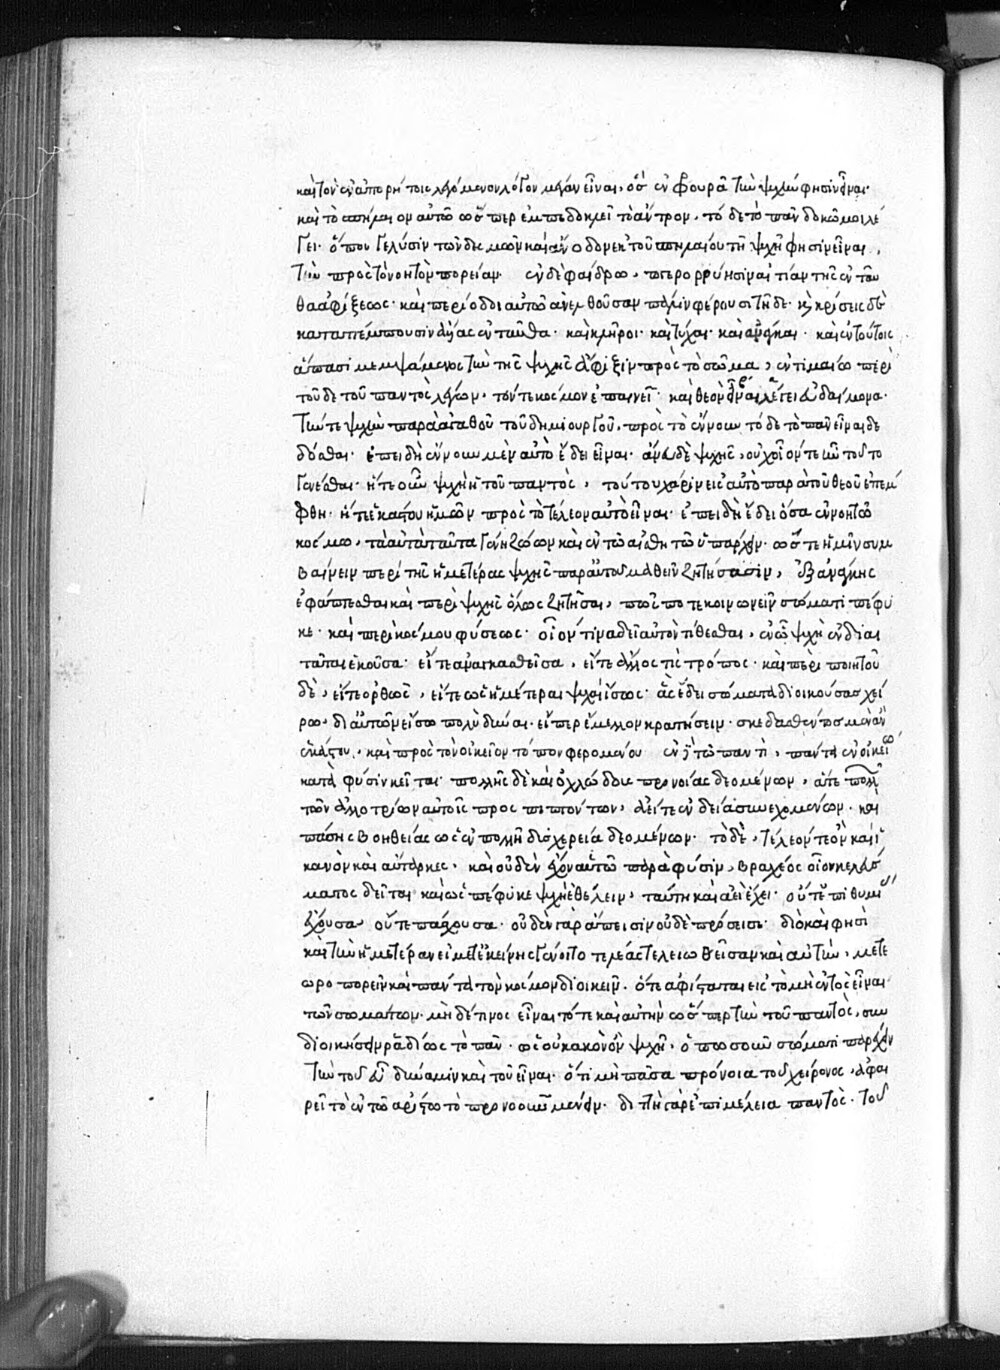 καὶ τὸν ἐν ἀπορρήτοις λεγόμενον λόγον μέγαν εἶναι, ὃς ἐν φρουρᾷ τὴν ψυχὴν φησὶν εἶναι·
καὶ τὸ σπήλαιον αὐτῷ ὥσπερ ἐμπεδοκλεῖ τὸ ἄντρον, τόδε τὸ πᾶν δοκῶ μοι λέ
γει· ὅπου γε λύσιν τῶν δεσμῶν καὶ ἄνοδον ἐκ τοῦ σπηλαίου τῇ ψυχῇ φησιν εἶναι,
τὴν πρὸς τὸ νοητὸν πορείαν· ἐν δὲ φαίδρῳ, πτερορρύησιν αἰτίαν τῆς ἐνταῦ
θα ἀφίξεως· καὶ περίοδοι αὐτῷ ἀνελθοῦσαν πάλιν φέρουσι τῇδε· καὶ κρίσεις δὲ
καταπέμπουσιν ἄλλας ἐνταῦθα· καὶ κλῆροι· καὶ τύχαι· καὶ ἀνάγκαι· καὶ ἐν τούτοις
ἅπασι μεμψάμενος τὴν τῆς ψυχῆς ἄφιξιν πρὸς τὸ σῶμα, ἐν τιμαίῳ περὶ
τοῦδε τοῦ παντὸς λέγων, τόν τε κόσμον ἐπαινεῖ· καὶ θεὸν εἶναι λέγει εὐδαίμονα·
τήν τε ψυχὴν παρὰ ἀγαθοῦ τοῦ δημιουργοῦ, πρὸς τὸ ἔννουν τόδε τὸ πᾶν εἶναι δε
δόσθαι· ἐπειδὴ ἔννουν μὲν αὐτὸ ἔδει εἶναι· ἄνευ δὲ ψυχῆς, οὐχ οἷόν τε ἦν τοῦτο
γενέσθαι· ἥ τε οὖν ψυχὴ ἡ τοῦ παντὸς, τούτου χάριν εἰς αὐτὸ παρὰ τοῦ θεοῦ ἐπέμ
φθη· ἥ τε ἑκάστου ἡμῶν πρὸς τὸ τέλεον αὐτὸ εἶναι· ἐπειδὴ ἔδει ὅσα ἐν νοητῷ
κόσμῳ, τὰ αὐτὰ ταῦτα γένη ζῴων καὶ ἐν τῷ αἰσθητῷ ὑπάρχειν· ὥστε ἡμῖν συμ
βαίνειν περὶ τῆς ἡμετέρας ψυχῆς παρ' αὐτοῦ μαθεῖν ζητήσασιν, ἐξ ἀνάγκης
ἐφάπτεσθαι καὶ περὶ ψυχῆς ὅλως ζητῆσαι, πῶς ποτε κοινωνεῖν σώματι πέφυ
κε· καὶ περὶ κόσμου φύσεως· οἷόν τινα δεῖ αὐτὸν τίθεσθαι, ἐν ᾧ ψυχὴ ἐνδιαι
τᾶται ἑκοῦσα· εἴτε ἀναγκασθεῖσα, εἴτε ἄλλος τις τρόπος· καὶ περὶ ποιητοῦ
δὲ, εἴτε ὀρθῶς, εἴτε ὡς ἡμέτεραι ψυχαὶ ἴσως· ἃς ἔδει σώματα διοικούσας χεί
ρω, δι' αὐτῶν εἴσω πολὺ δῦναι· εἴπερ ἔμελλον κρατήσειν· σκεδασθέντος μὲν ἂν
ἑκάστου, καὶ πρὸς τὸν οἰκεῖον τόπον φερομένου ἐν δὲ τῷ παντὶ, πάντα ἐν οἰκείῳ
κατὰ φύσιν κεῖται· πολλῆς δὲ καὶ ὀχλώδους προνοίας δεομένων, ἅτε πολλῶν
τῶν ἀλλοτρίων αὐτοῖς προσπιπτόντων, ἀεί τε ἐνδείᾳ συνεχομένων· καὶ
πάσης βοηθείας ὡς ἐν πολλῇ δυσχερείᾳ δεομένων· τὸ δὲ, τέλεόν τε ὂν καὶ ἱ
κανὸν καὶ αὔταρκες· καὶ οὐδὲν ἔχον αὐτῷ παρὰ φύσιν, βραχέος οἷον κελεύσ
ματος δεῖται καὶ ὡς πέφυκε ψυχὴ ἐθέλειν, ταύτῃ καὶ ἀεὶ ἔχει· οὔτ' ἐπιθυμίας
ἔχουσα, οὔτε πάσχουσα· οὐδὲν γὰρ ἄπεισιν οὐδὲ πρόσεισι· διὸ καί φησι
καὶ τὴν ἡμετέραν εἰ μετ' ἐκείνης γένοιτο τελέας τελειωθεῖσαν καὶ αὐτὴν, μετε
ωροπορεῖν καὶ πάντα τὸν κόσμον διοικεῖν· ὅτε ἀφίσταται εἰς τὸ μὴ ἐντὸς εἶναι
τῶν σωμάτων· μηδέ τινος εἶναι τότε καὶ αὐτὴν ὥσπερ τὴν τοῦ παντὸς, συν
διοικήσειν ῥᾳδίως τὸ πᾶν· ὡς οὐ κακὸν ὂν ψυχῇ, ὁπωσοῦν σώματι παρέχειν
τὴν τοῦ εὖ δύναμιν καὶ τοῦ εἶναι· ὅτι μὴ πᾶσα πρόνοια τοῦ χείρονος, ἀφαι
ρεῖ τὸ ἐν τῷ ἀρίστῳ τὸ προνοοῦν μένειν· διττὴ γὰρ ἐπιμέλεια παντὸς· τοῦ